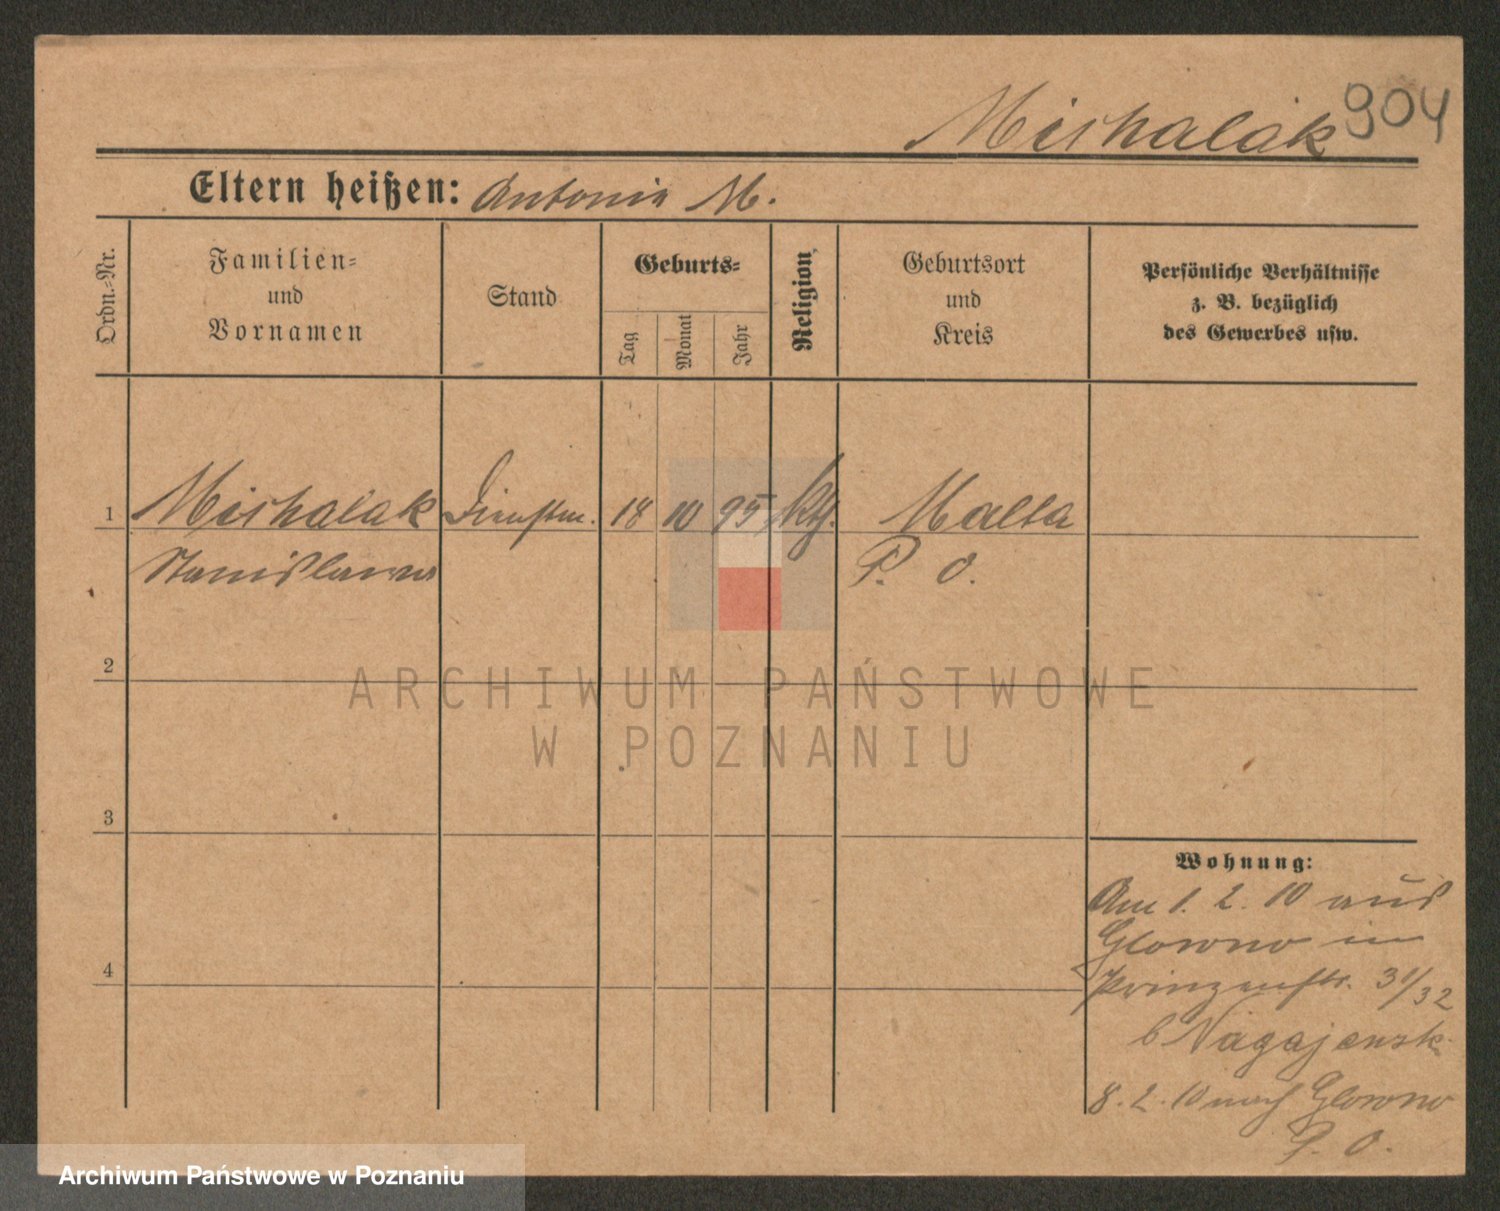 Mishalak 904
Eltern heißen: Antonia M.
Ordn.-Nr.
Familien-
und
Vornamen
Stand
Geburts-
Tag
Monat
Jahr
Religion
Geburtsort
und
Kreis
Persönliche Verhältnisse
z. B. bezüglich
des Gewerbes usw.
1 Mishalak Dienstm. 18 10 95 kth. Malta
Stanislawa P. O.
2
3
4
Wohnung:
Am 1. 2. 10 aus
Glowno in
Prinzenstr. 31/32
b Nagajensk.
8. 2. 10 nach Glowno
P. O.
ARCHIWUM PAŃSTWOWE
W POZNANIU
Archiwum Państwowe w Poznaniu